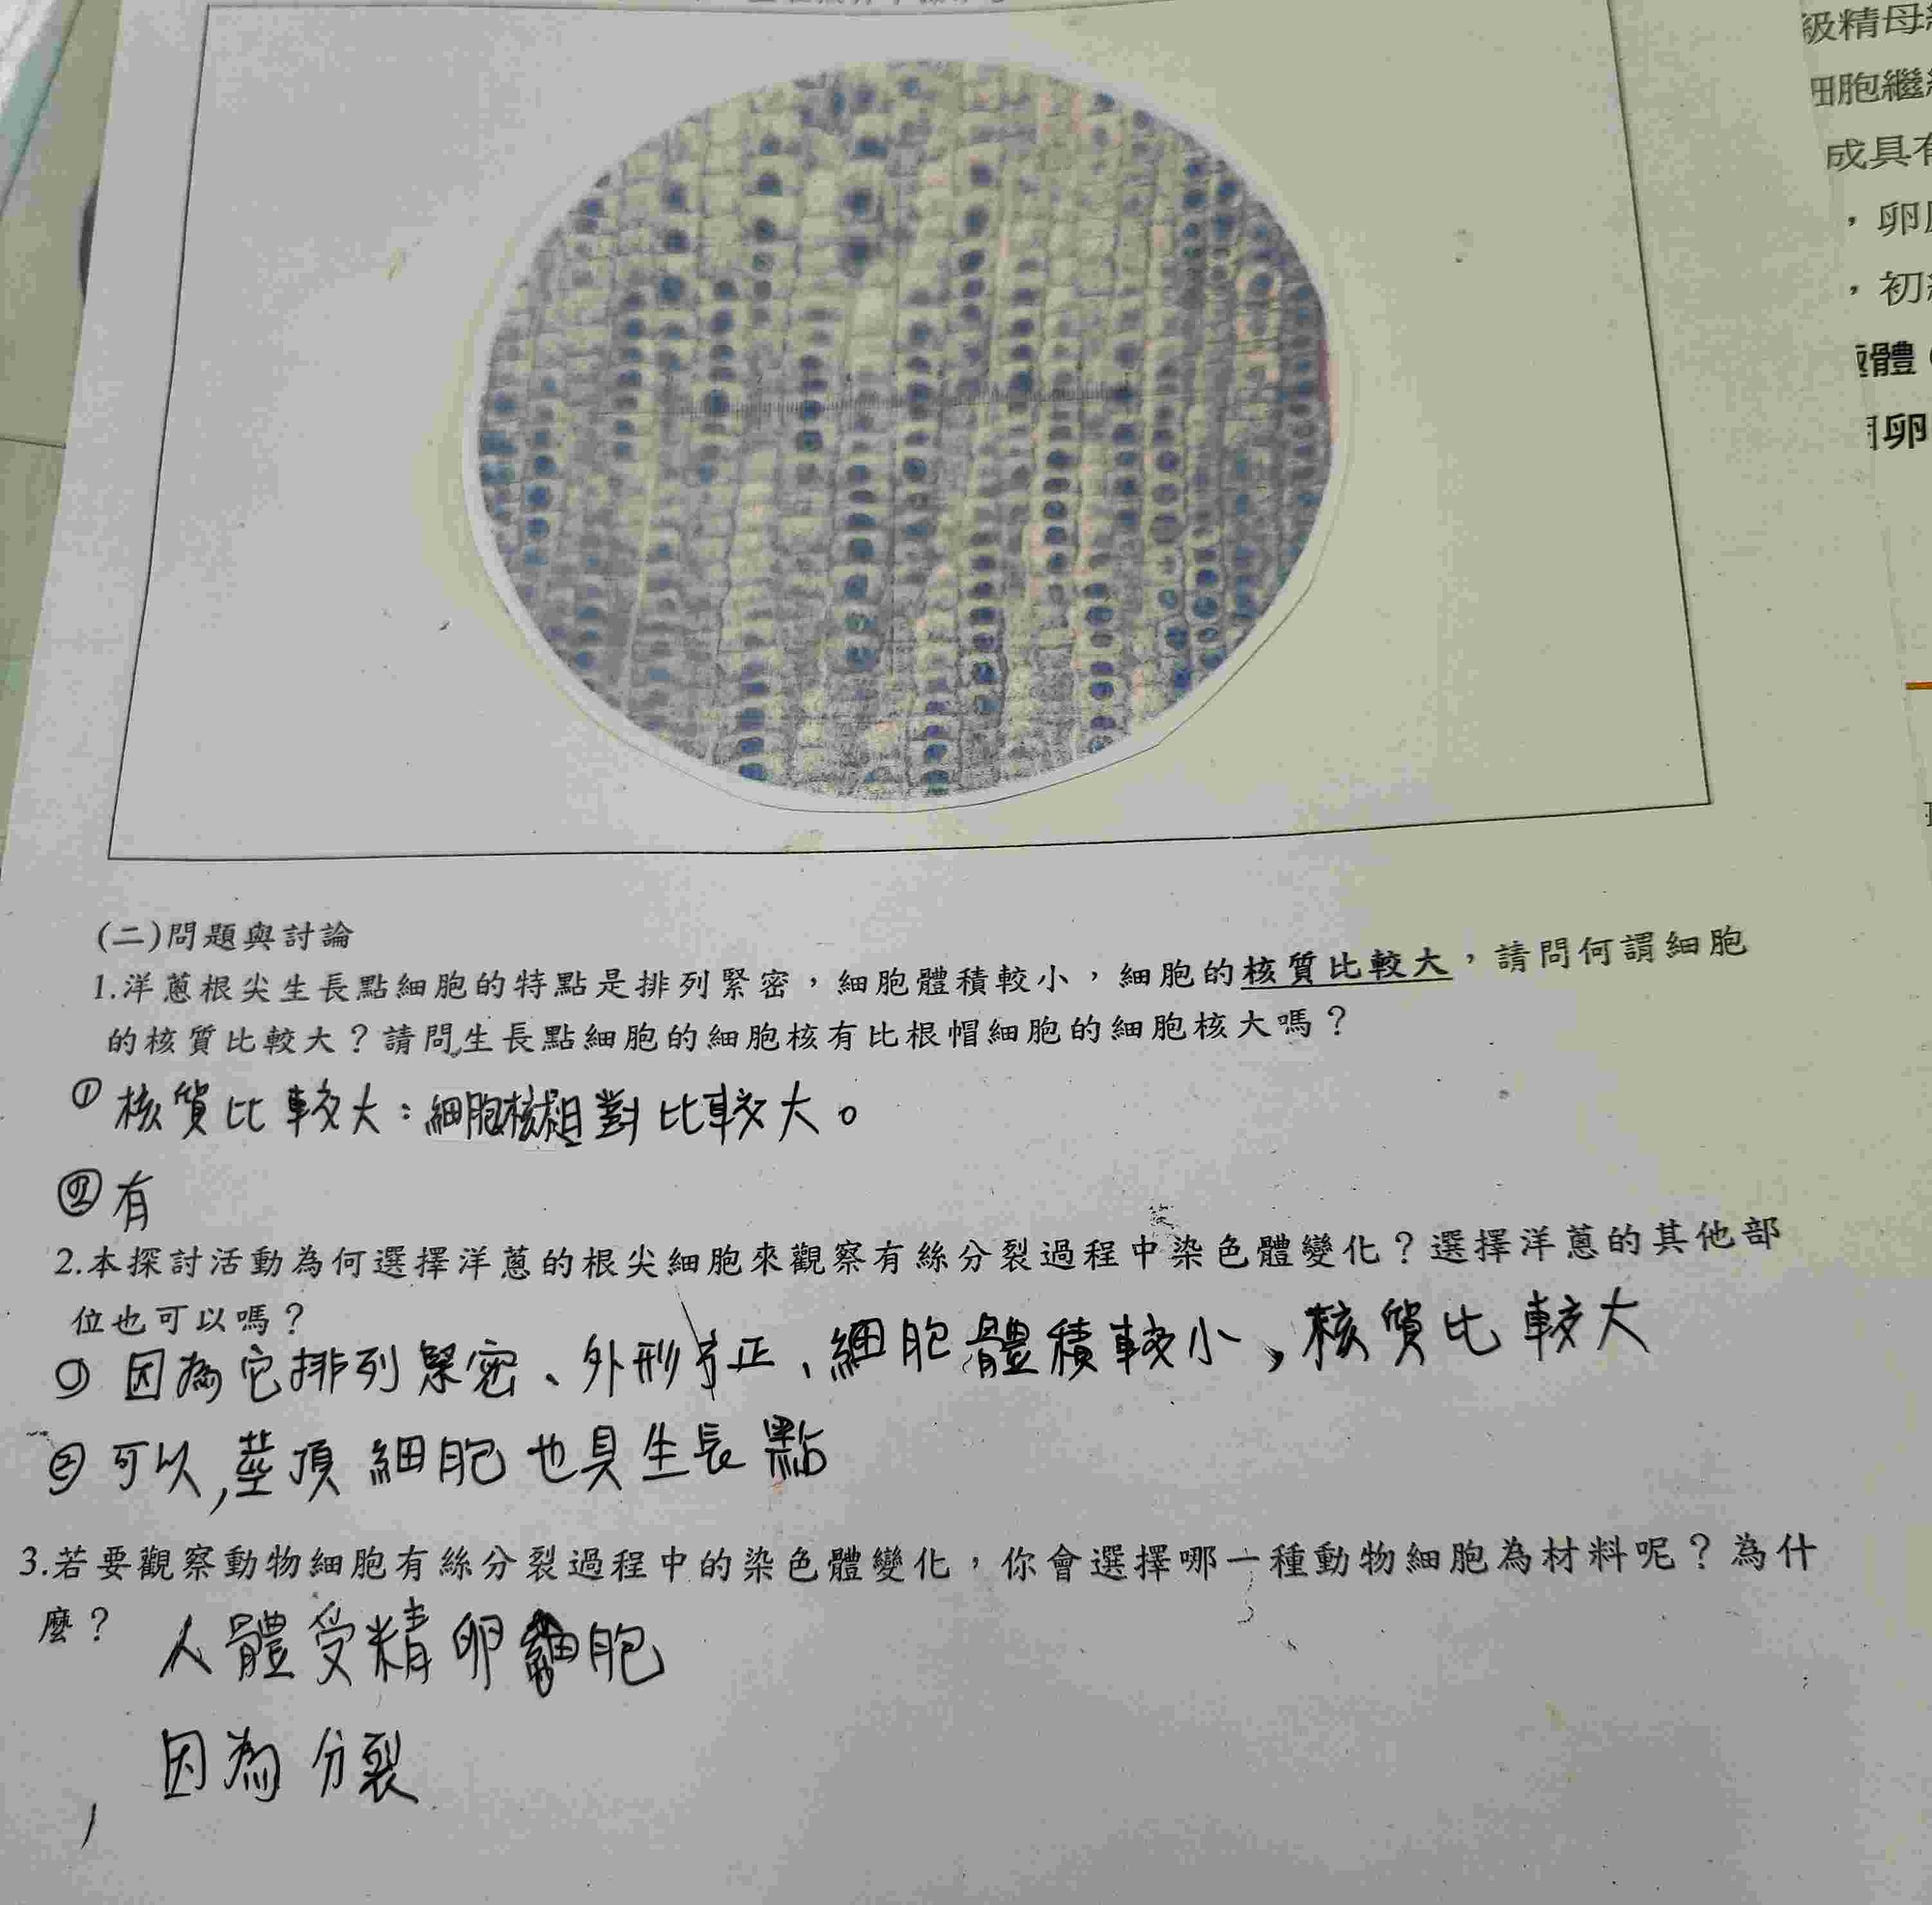 級精母
細胞繼
成具有
，卵
，初
極體
卵
(二)問題與討論
1.洋蔥根尖生長點細胞的特點是排列緊密，細胞體積較小，細胞的核質比較大，請問何謂細胞
的核質比較大？請問生長點細胞的細胞核有比根帽細胞的細胞核大嗎？
① 核質比較大：細胞核相對比較大。
② 有
2.本探討活動為何選擇洋蔥的根尖細胞來觀察有絲分裂過程中染色體變化？選擇洋蔥的其他部
位也可以嗎？
① 因為它排列緊密、外形方正、細胞體積較小，核質比較大
② 可以，莖頂細胞也具生長點
3.若要觀察動物細胞有絲分裂過程中的染色體變化，你會選擇哪一種動物細胞為材料呢？為什
麼？
人體受精卵細胞
因為分裂